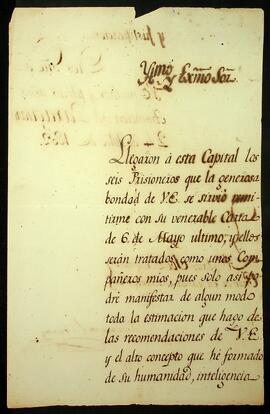 Ylmo y Exmo Sor.
Llegaron á esta Capital los
seis Prisioneros que la generosa
bondad de V.E. se sirvió remi-
tirme con su venerable Carta
de 6 de Mayo ultimo, y ellos
serán tratados como unos Com-
pañeros mios, pues solo asi po-
dré manifestar de algun modo
toda la estimacion que hago de
las recomendaciones de V.E.
y el alto concepto que hé formado
de su humanidad, inteligencia